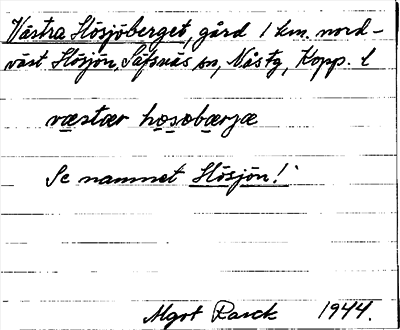 Västra Hösjöberget, gård 1 km. nord-
väst Hösjön, Säfsnäs sn, Nås tg, Kopp. l
væstær høsøbærjæ
Se namnet Hösjön!
Algot Rasck 1944.